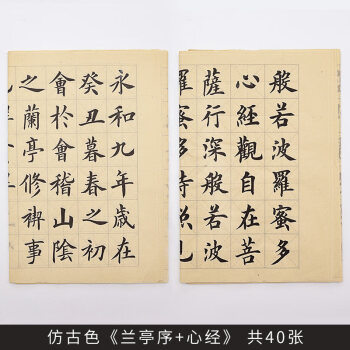 永和九年歲在
癸丑暮春之初
會於會稽山陰
之蘭亭修禊事
般若波羅蜜多
心經觀自在菩
薩行深般若波
羅蜜多時照見
仿古色《兰亭序+心经》 共40张